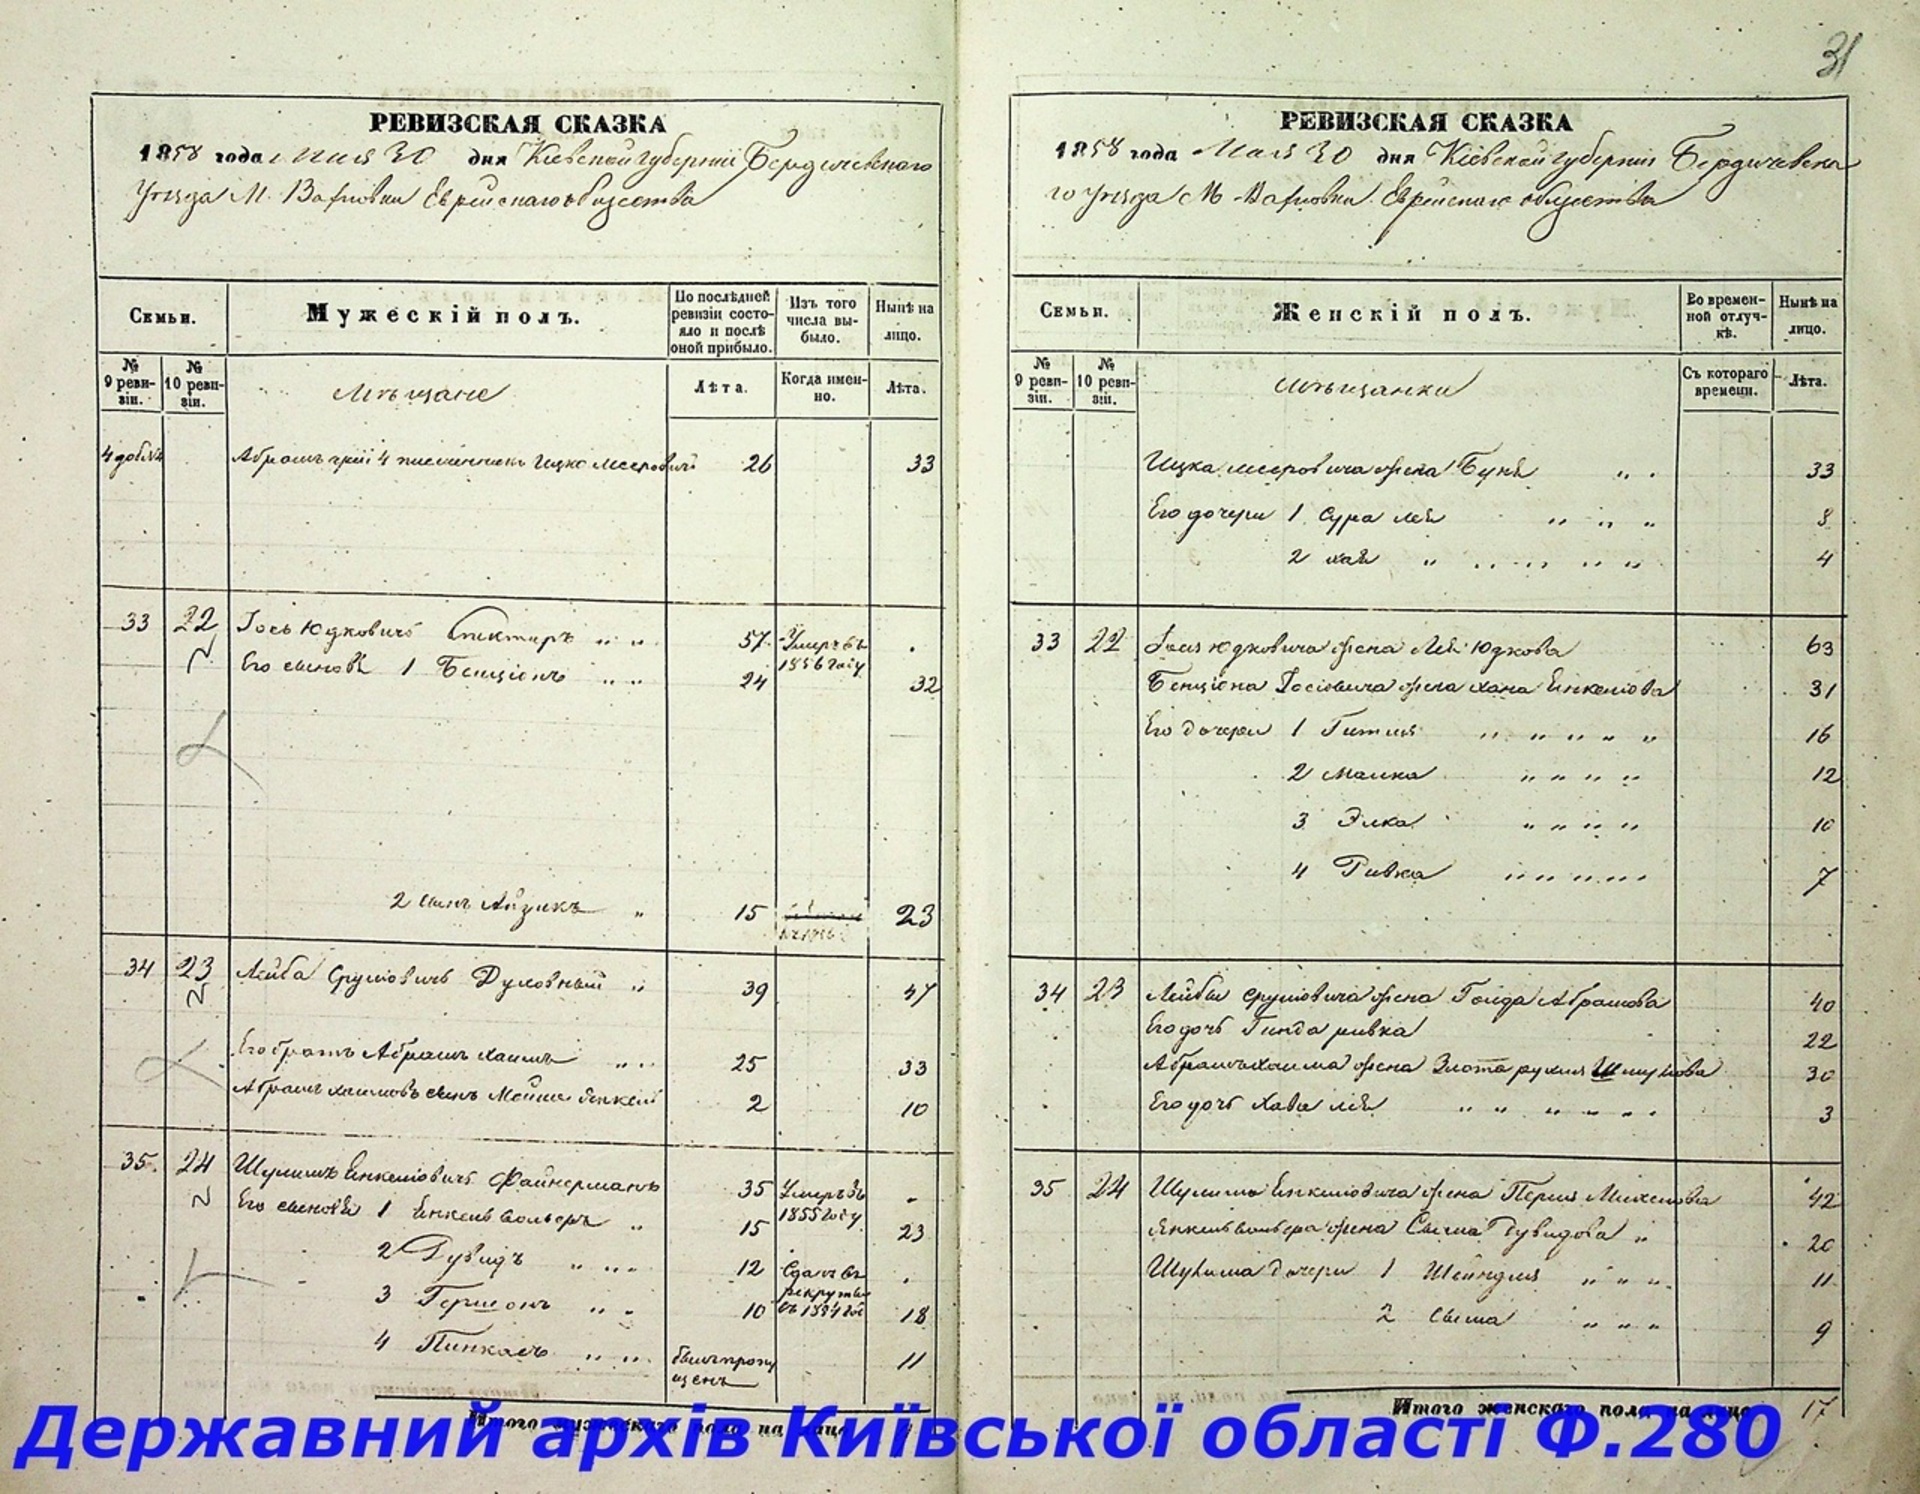 31
РЕВИЗСКАЯ СКАЗКА
1858 года Мая 30 дня Кіевской губерніи Бердичевскаго
Уѣзда М. Вахновки Еврейскаго общества
Семьи.
Мужескій полъ.
По послѣдней ревизіи состояло и послѣ оной прибыло.
Изъ того числа выбыло.
Нынѣ на лицо.
№ 9 ревизіи.
№ 10 ревизіи.
Мѣщане
Лѣта.
Когда именно.
Лѣта.
Абрамъ Ицко Мееровичъ 26 33
33 22 Іось Юдковичъ 57 Умеръ въ 1856 году
Его сыновья 1 Бенціонъ 24 32
2 сынъ Айзикъ 15 23
34 23 Лейба Сруловичъ Духовный 39 47
Его братъ Абрамъ Хаимъ 25 33
Абрамъ Хаимовъ сынъ Мойше Янкель 2 10
35 24 Шулимъ Янкелiовичъ Файнерманъ 35 Умеръ въ 1855 году
Его сыновья 1 Янкель Вольфъ 15 23
2 Дувидъ 12 Сданъ въ рекруты въ 1854 год
3 Гершонъ 10 18
4 Пинкасъ былъ пропущенъ 11
Итого мужескаго пола на лицо
РЕВИЗСКАЯ СКАЗКА
1858 года Мая 30 дня Кіевской губерніи Бердичевска
го Уѣзда М. Вахновки Еврейскаго общества
Семьи.
Женскій полъ.
Во временной отлучкѣ.
Нынѣ на лицо.
№ 9 ревизіи.
№ 10 ревизіи.
Мѣщанки
Съ котораго времени.
Лѣта.
Ицка Мееровича жена Буня 33
Его дочери 1 Сура Лея 8
2 Хая 4
33 22 Іося Юдковича жена Лея Юдкова 63
Бенціона Іосіовича жена Хана Янкеліова 31
Его дочери 1 Гитля 16
2 Малка 12
3 Элка 10
4 Ривка 7
34 23 Лейбы Сруліовича жена Голда Абрамова 40
Его дочь Гинда Ривка 22
Абрамъ Хаима жена Злота Рухля Шмулова 30
Его дочь Хава Лея 3
35 24 Шулима Янкеліовича жена Перля 42
Янкель Вольфа жена Сыма Дувидова 20
Шулима дочери 1 Шейндля 11
2 Сыма 9
Итого женскаго пола на лицо 17
Державний архів Київської області Ф.280